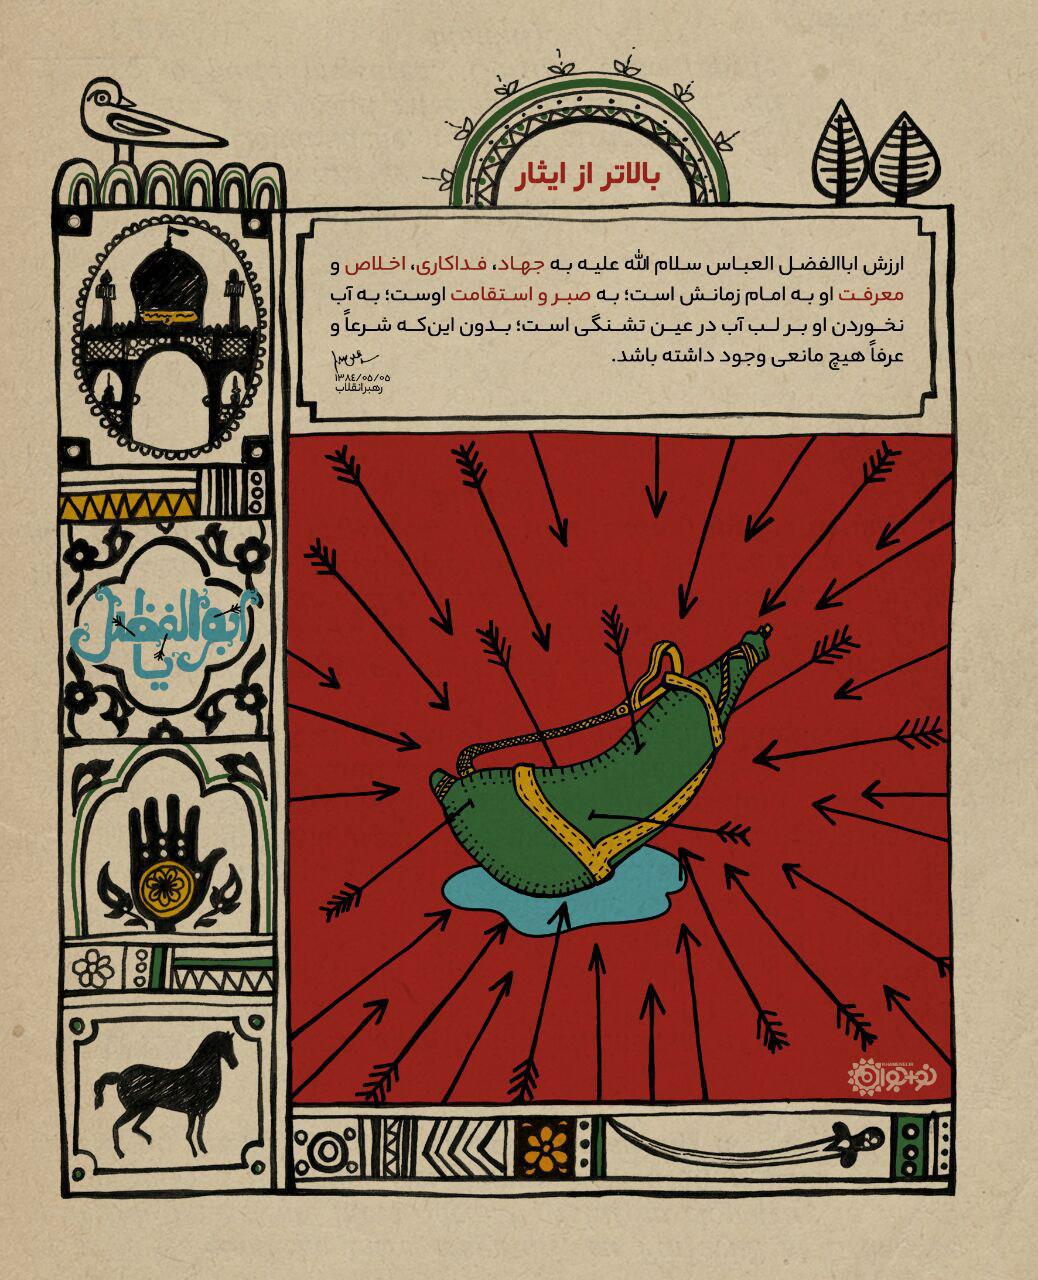 بالاتر از ایثار
ارزش اباالفضل العباس سلام الله علیه به جهاد، فداکاری، اخلاص و
معرفت او به امام زمانش است؛ به صبر و استقامت اوست؛ به آب
نخوردن او بر لب آب در عین تشنگی است؛ بدون این‌که شرعاً و
عرفاً هیچ مانعی وجود داشته باشد.
۱۳۸۴/۰۵/۰۵
رهبرانقلاب
یا ابوالفضل
KHAMENEI.IR
نوجوان